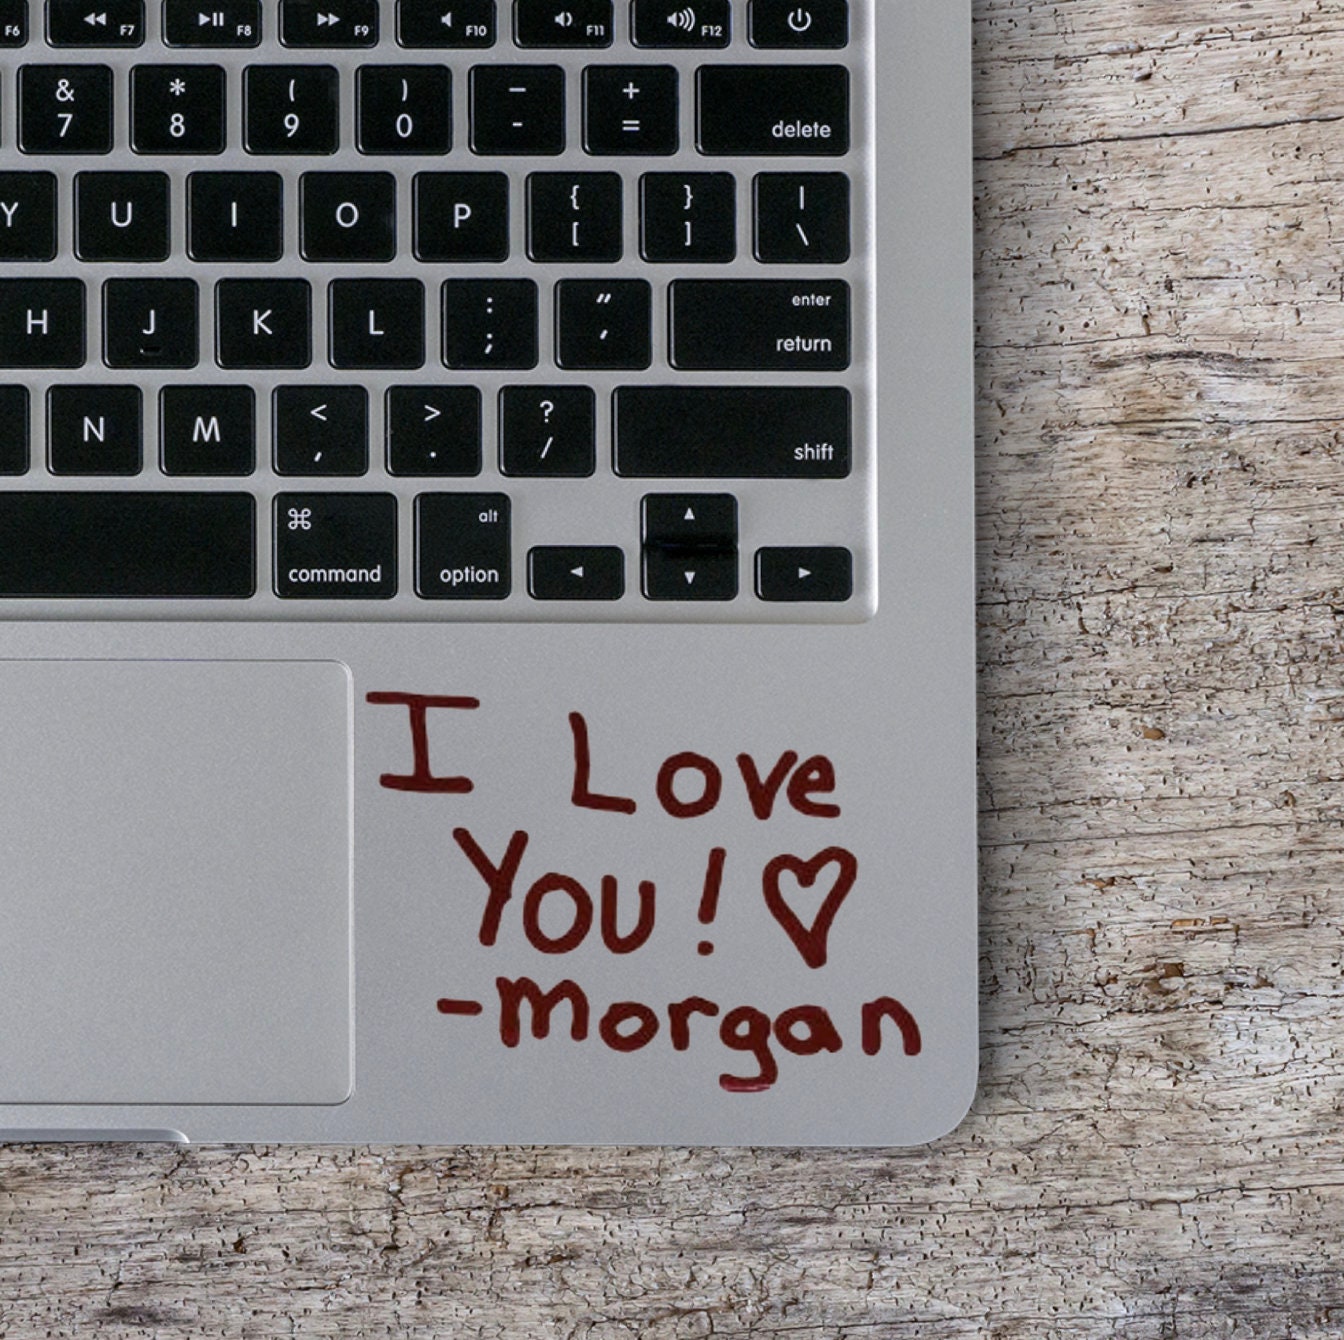 F6 F7 F8 F9 F10 F11 F12
& * ( ) — +
7 8 9 0 - = delete
Y U I O P { } |
[ ] \
H J K L : " enter
; ' return
N M < > ? shift
, . /
⌘ alt
command option
I Love
You! ♡
-morgan